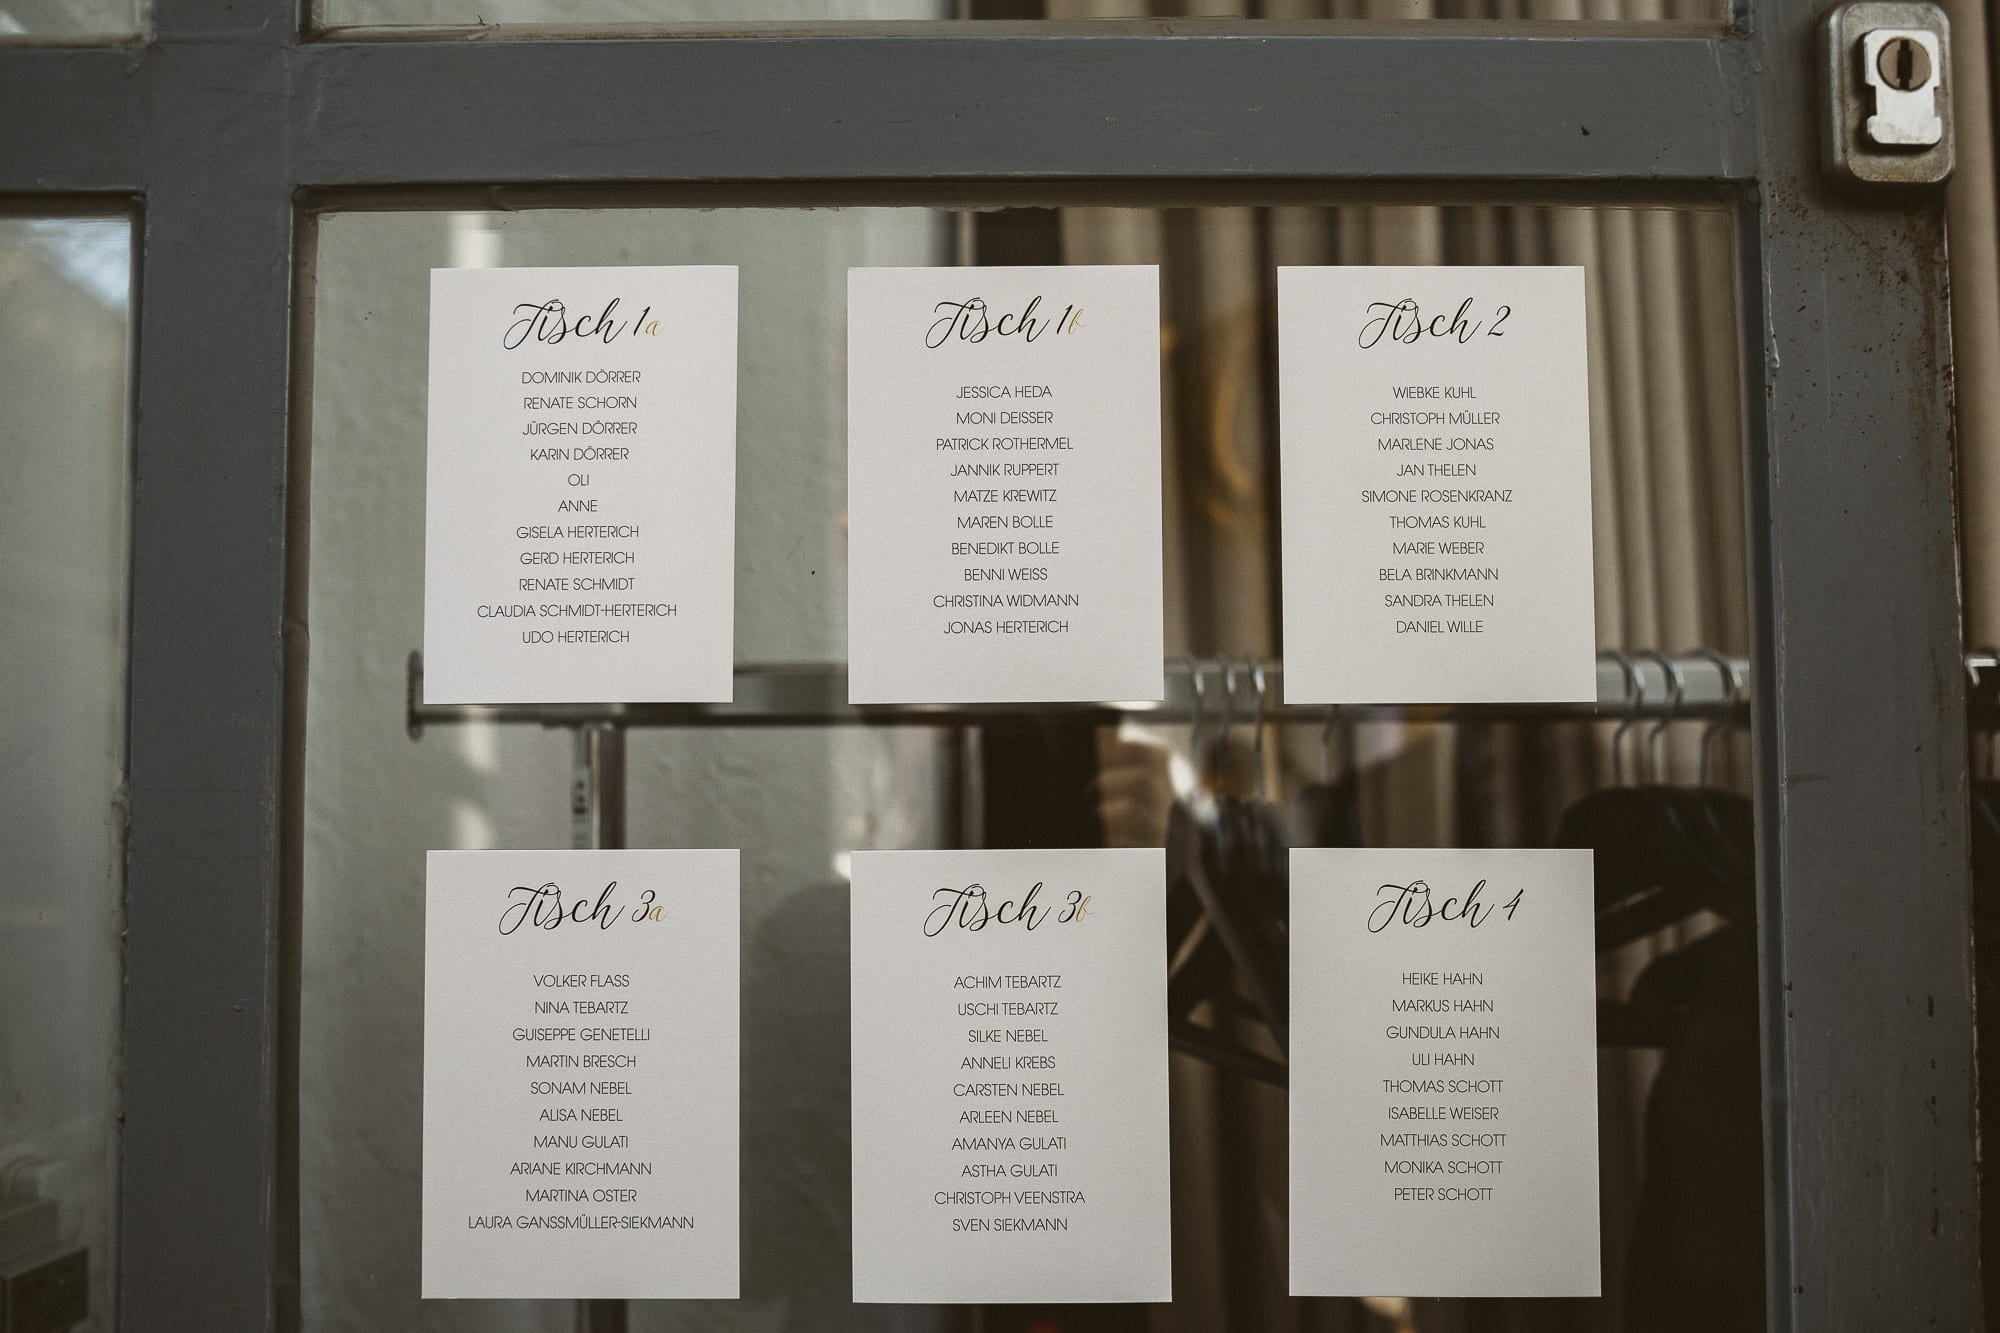 Tisch 1a
DOMINIK DÖRRER
RENATE SCHORN
JÜRGEN DÖRRER
KARIN DÖRRER
OLI
ANNE
GISELA HERTERICH
GERD HERTERICH
RENATE SCHMIDT
CLAUDIA SCHMIDT-HERTERICH
UDO HERTERICH
Tisch 1b
JESSICA HEDA
MONI DEISSER
PATRICK ROTHERMEL
JANNIK RUPPERT
MATZE KREWITZ
MAREN BOLLE
BENEDIKT BOLLE
BENNI WEISS
CHRISTINA WIDMANN
JONAS HERTERICH
Tisch 2
WIEBKE KUHL
CHRISTOPH MÜLLER
MARLENE JONAS
JAN THELEN
SIMONE ROSENKRANZ
THOMAS KUHL
MARIE WEBER
BELA BRINKMANN
SANDRA THELEN
DANIEL WILLE
Tisch 3a
VOLKER FLASS
NINA TEBARTZ
GUISEPPE GENETELLI
MARTIN BRESCH
SONAM NEBEL
ALISA NEBEL
MANU GULATI
ARIANE KIRCHMANN
MARTINA OSTER
LAURA GANSSMÜLLER-SIEKMANN
Tisch 3b
ACHIM TEBARTZ
USCHI TEBARTZ
SILKE NEBEL
ANNELI KREBS
CARSTEN NEBEL
ARLEEN NEBEL
AMANYA GULATI
ASTHA GULATI
CHRISTOPH VEENSTRA
SVEN SIEKMANN
Tisch 4
HEIKE HAHN
MARKUS HAHN
GUNDULA HAHN
ULI HAHN
THOMAS SCHOTT
ISABELLE WEISER
MATTHIAS SCHOTT
MONIKA SCHOTT
PETER SCHOTT